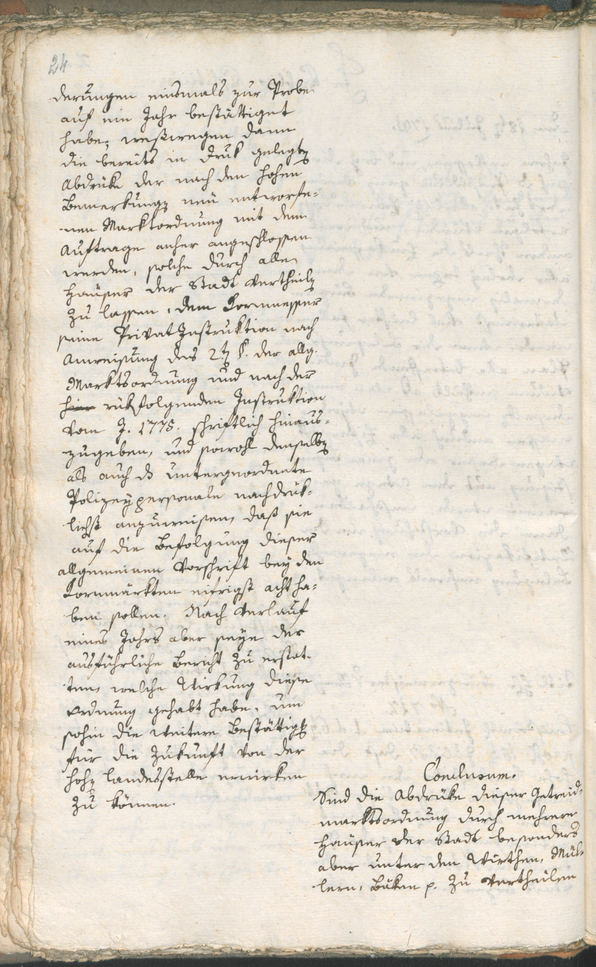 24
derungen einsmals zur Probe
auf ein Jahr bestättiget
habe; weßwegen dann
die bereits in Druk gelegte
Abdrüke der nach den hohen
Bemerkungen neu entworfe-
nen Marktordnung mit dem
Auftrage anher angeschlossen
werden, solche durch alle
Häuser der Stadt vertheilen
zu lassen, dem Kornmesser
seine Privat Instruktion nach
Anweisung des 2ten §. der allg.
Marktsordnung und nach der
rükfolgenden Instruktion
vom J. 1775. schriftlich hinaus-
zugeben, und sowohl denselben
als auch das untergeordnete
Polizeypersonale nachdrük-
lichst anzuweisen, daß sie
auf die Befolgung dieser
allgemeinen Vorschrift bey den
Kornmärkten eifrigst acht ha-
ben sollen. Nach Verlauf
eines Jahrs aber seye der
ausführliche Bericht zu erstat-
ten, welche Wirkung diese
Ordnung gehabt habe, um
sohin die weitere Bestätigung
für die Zukunft von der
hohen Landesstelle erwirken
zu können.
Conclusum.
Sind die Abdrüke dieser Getreid-
marktsordnung durch mehrere
Häuser der Stadt besonders
aber unter den Wirthen, Mül-
lern, Bäken p. zu vertheilen